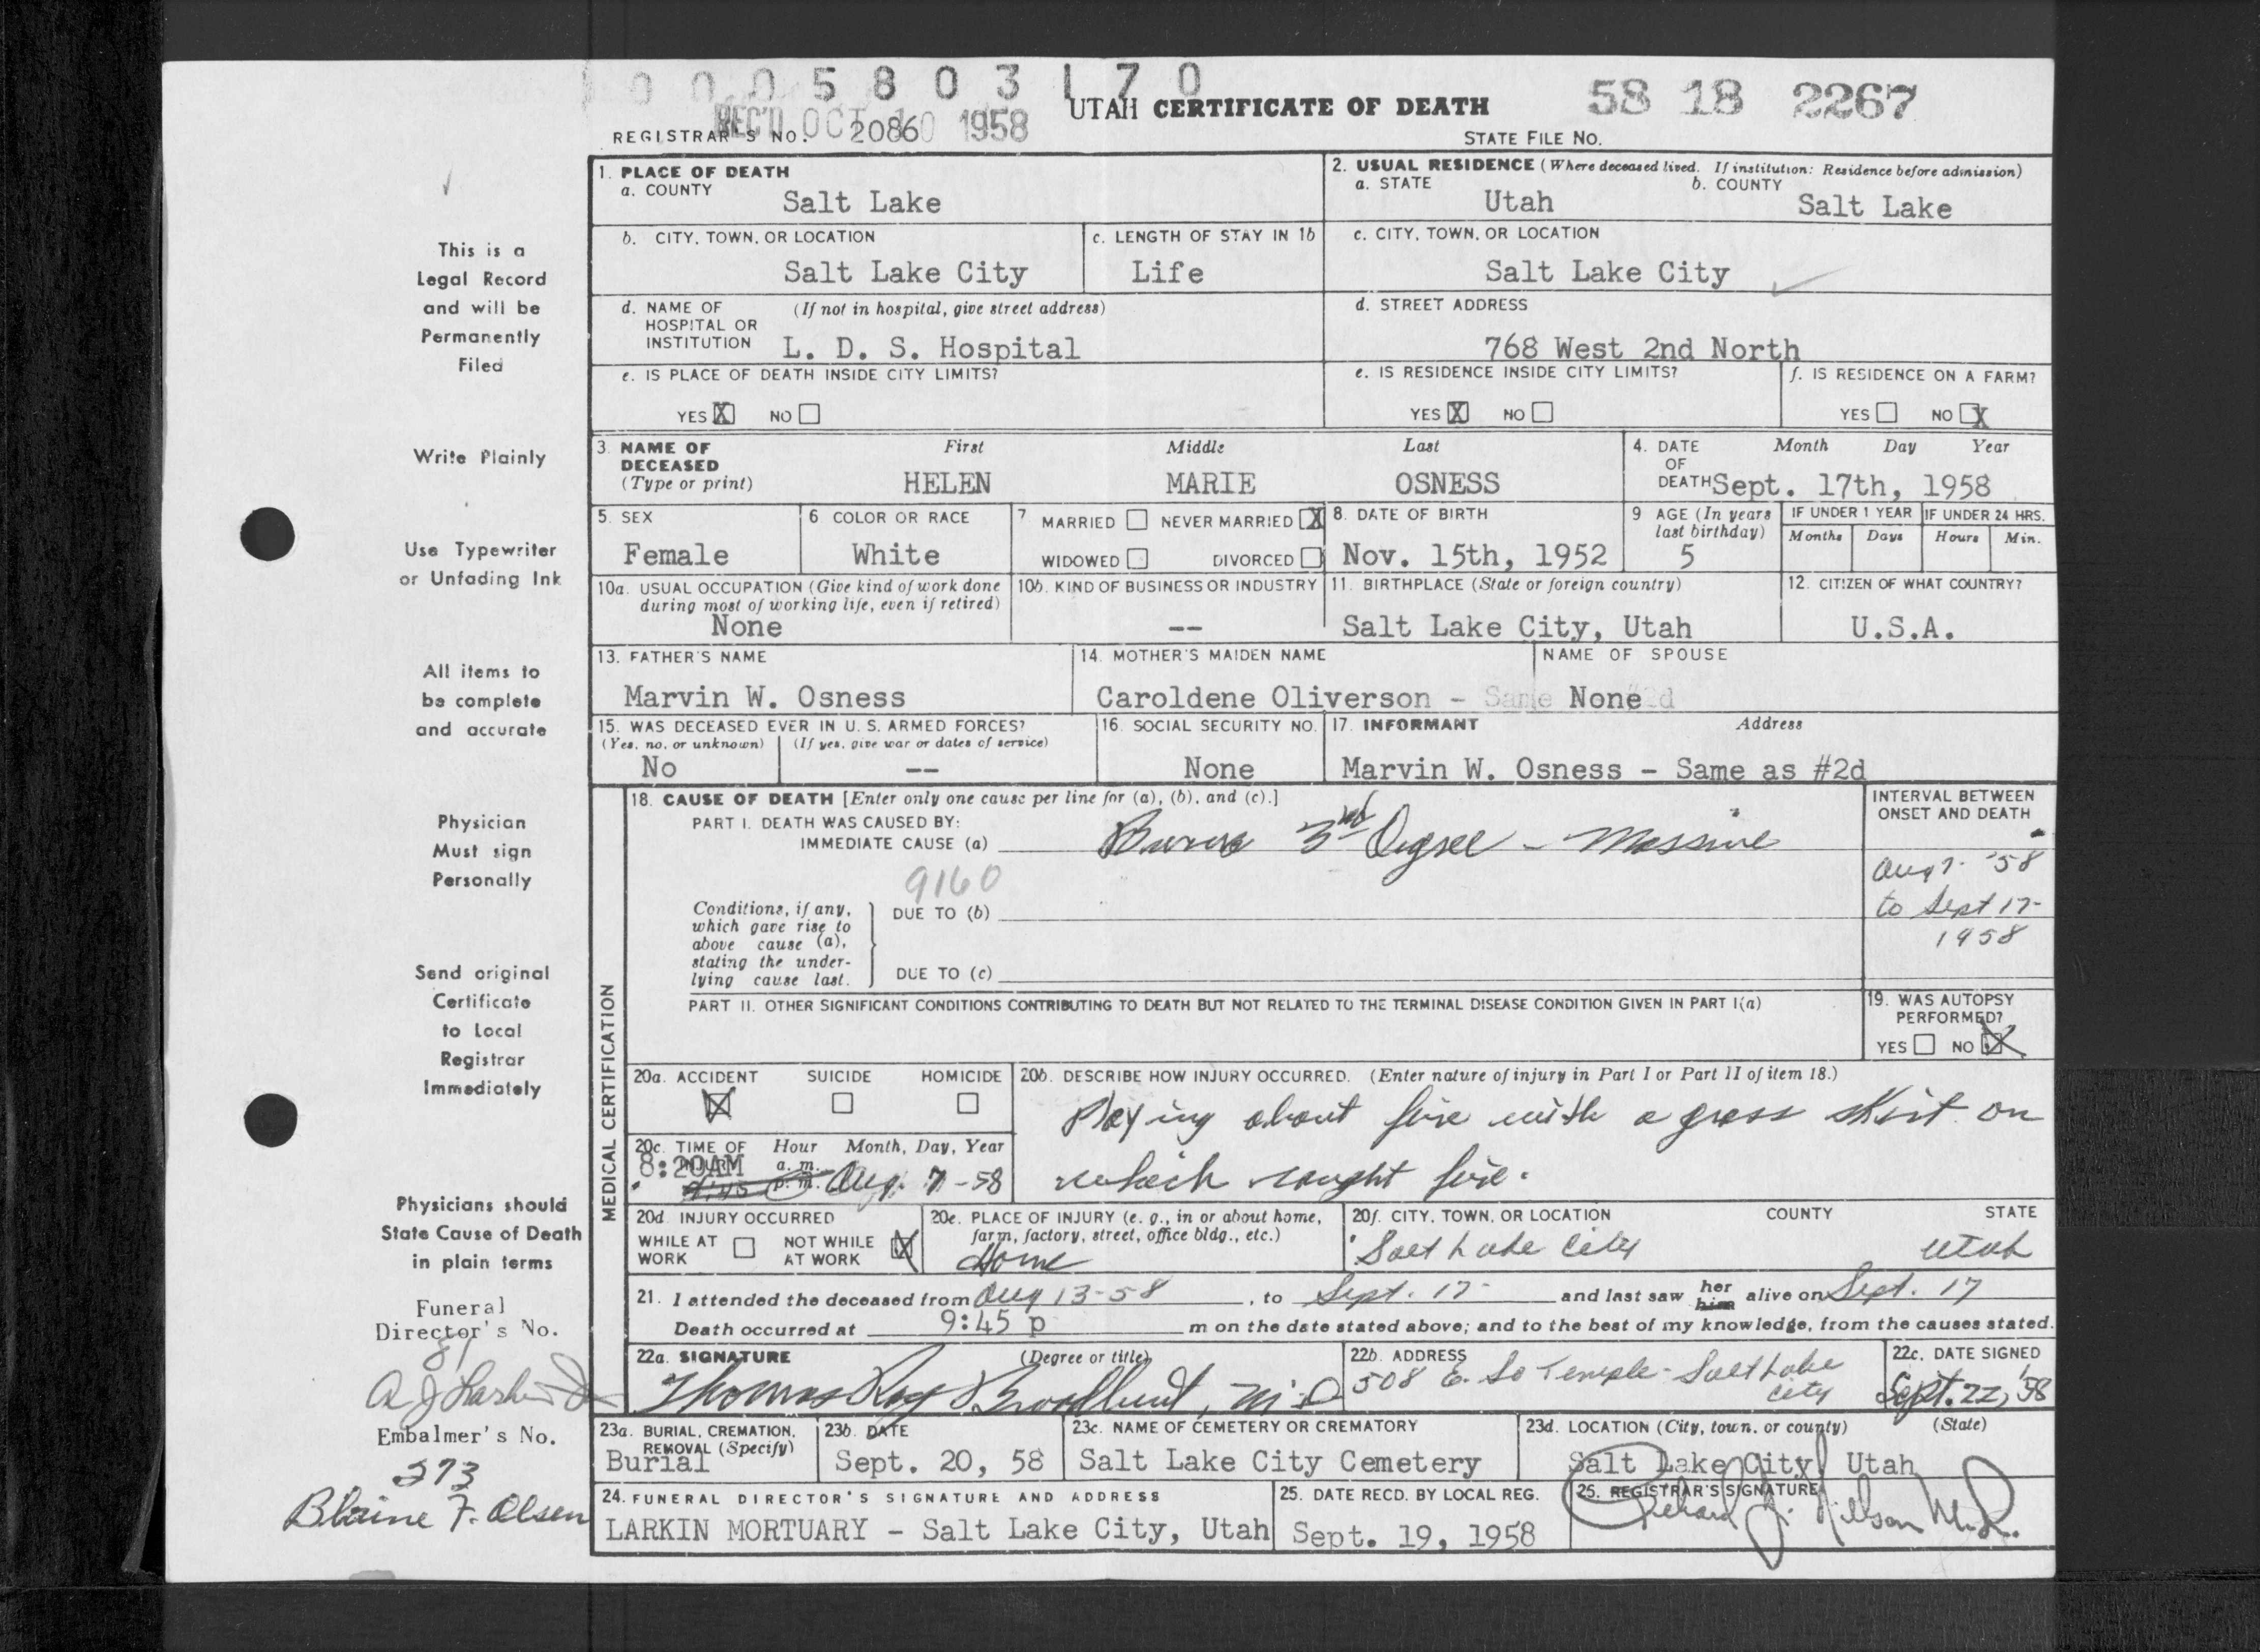 0 0 0 5 8 0 3 1 7 0
REC'D OCT 10 1958
UTAH CERTIFICATE OF DEATH
58 18 2267
REGISTRAR'S NO. 2086
STATE FILE NO.
This is a
Legal Record
and will be
Permanently
Filed
Write Plainly
Use Typewriter
or Unfading Ink
All items to
be complete
and accurate
Physician
Must sign
Personally
Send original
Certificate
to Local
Registrar
Immediately
Physicians should
State Cause of Death
in plain terms
Funeral
Director's No.
81
Embalmer's No.
273
Blaine F. Olsen
1. PLACE OF DEATH
a. COUNTY
Salt Lake
2. USUAL RESIDENCE (Where deceased lived. If institution: Residence before admission)
a. STATE
Utah
b. COUNTY
Salt Lake
b. CITY, TOWN, OR LOCATION
Salt Lake City
c. LENGTH OF STAY IN 1b
Life
c. CITY, TOWN, OR LOCATION
Salt Lake City
d. NAME OF (If not in hospital, give street address)
HOSPITAL OR
INSTITUTION L. D. S. Hospital
d. STREET ADDRESS
768 West 2nd North
e. IS PLACE OF DEATH INSIDE CITY LIMITS?
YES X NO
e. IS RESIDENCE INSIDE CITY LIMITS?
YES X NO
f. IS RESIDENCE ON A FARM?
YES NO X
3. NAME OF First Middle Last
DECEASED
(Type or print) HELEN MARIE OSNESS
4. DATE Month Day Year
OF
DEATH Sept. 17th, 1958
5. SEX
Female
6 COLOR OR RACE
White
7 MARRIED NEVER MARRIED X
WIDOWED DIVORCED
8. DATE OF BIRTH
Nov. 15th, 1952
9 AGE (In years
last birthday)
5
IF UNDER 1 YEAR
Months Days
IF UNDER 24 HRS.
Hours Min.
10a. USUAL OCCUPATION (Give kind of work done
during most of working life, even if retired)
None
10b. KIND OF BUSINESS OR INDUSTRY
--
11. BIRTHPLACE (State or foreign country)
Salt Lake City, Utah
12. CITIZEN OF WHAT COUNTRY?
U.S.A.
13. FATHER'S NAME
Marvin W. Osness
14. MOTHER'S MAIDEN NAME
Caroldene Oliverson -
NAME OF SPOUSE
None
15. WAS DECEASED EVER IN U. S. ARMED FORCES?
(Yes, no, or unknown) (If yes, give war or dates of service)
No --
16. SOCIAL SECURITY NO.
None
17. INFORMANT Address
Marvin W. Osness - Same as #2d
MEDICAL CERTIFICATION
18. CAUSE OF DEATH [Enter only one cause per line for (a), (b), and (c).]
PART I. DEATH WAS CAUSED BY:
IMMEDIATE CAUSE (a) Burns 3rd Degree - Massive
9160
Conditions, if any,
which gave rise to
above cause (a),
stating the under-
lying cause last.
DUE TO (b)
DUE TO (c)
INTERVAL BETWEEN
ONSET AND DEATH
Aug 7- '58
to Sept 17-
1958
PART II. OTHER SIGNIFICANT CONDITIONS CONTRIBUTING TO DEATH BUT NOT RELATED TO THE TERMINAL DISEASE CONDITION GIVEN IN PART I(a)
19. WAS AUTOPSY
PERFORMED?
YES NO X
20a. ACCIDENT SUICIDE HOMICIDE
X
20b. DESCRIBE HOW INJURY OCCURRED. (Enter nature of injury in Part I or Part II of item 18.)
Playing about fire with a grass skirt on
which caught fire.
20c. TIME OF Hour Month, Day, Year
INJURY a. m.
p. m.
8:20AM Aug. 7-58
20d. INJURY OCCURRED
WHILE AT NOT WHILE
WORK AT WORK X
20e. PLACE OF INJURY (e. g., in or about home,
farm, factory, street, office bldg., etc.)
Home
20f. CITY, TOWN, OR LOCATION COUNTY STATE
Salt Lake City Utah
21. I attended the deceased from Aug 13-58, to Sept. 17- and last saw her him alive on Sept. 17
Death occurred at 9:45 p m on the date stated above; and to the best of my knowledge, from the causes stated.
22a. SIGNATURE (Degree or title)
Thomas Ray Broadbent, M.D
22b. ADDRESS
508 E. So Temple - Salt Lake
City
22c. DATE SIGNED
Sept. 22, '58
23a. BURIAL, CREMATION,
REMOVAL (Specify)
Burial
23b. DATE
Sept. 20, 58
23c. NAME OF CEMETERY OR CREMATORY
Salt Lake City Cemetery
23d. LOCATION (City, town, or county) (State)
Salt Lake City Utah
24. FUNERAL DIRECTOR'S SIGNATURE AND ADDRESS
LARKIN MORTUARY - Salt Lake City, Utah
25. DATE RECD. BY LOCAL REG.
Sept. 19, 1958
26. REGISTRAR'S SIGNATURE